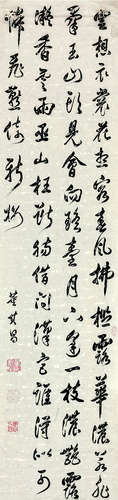 雲想衣裳花想容春風拂檻露華濃若非
羣玉山頭見會向瑤臺月下逢一枝濃艷露
凝香雲雨巫山枉斷腸借問漢宮誰得似可
憐飛燕倚新妝
董其昌